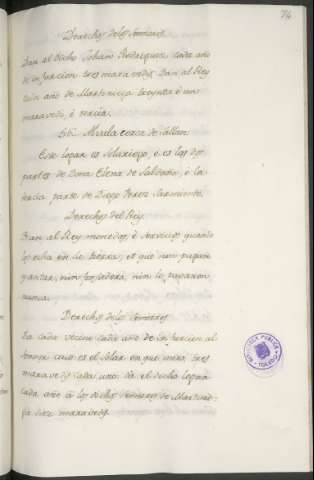 74
Derechos de los Señores
Dan al dicho Johan Rodriguez cada año
de infurcion tres maravedis. Dan al Rey
cada año de Martiniega treynta é un
maravedi, é tercia.
Muala cerca de Villan
Este logar es Solariego, é es las dos
partes de Dona Elena de Saldaña, é la
tercia parte de Diego Perez Sarmiento.
Derechos del Rey
Dan al Rey monedas, é servicios quando
los echa en la tierra, et que non pagan
yantar, nin fonsadera, nin lo pagaron
nunca.
Derechos de los Señores
Da cada vecino cada año de infurcion al
Señor cuio es el Solar en que mora, tres
maravedis cada uno: da el dicho logar
cada año á los dichos Señores de Martinie-
ga diez maravedis.
BIBLIOTECA PUBLICA
TOLEDO